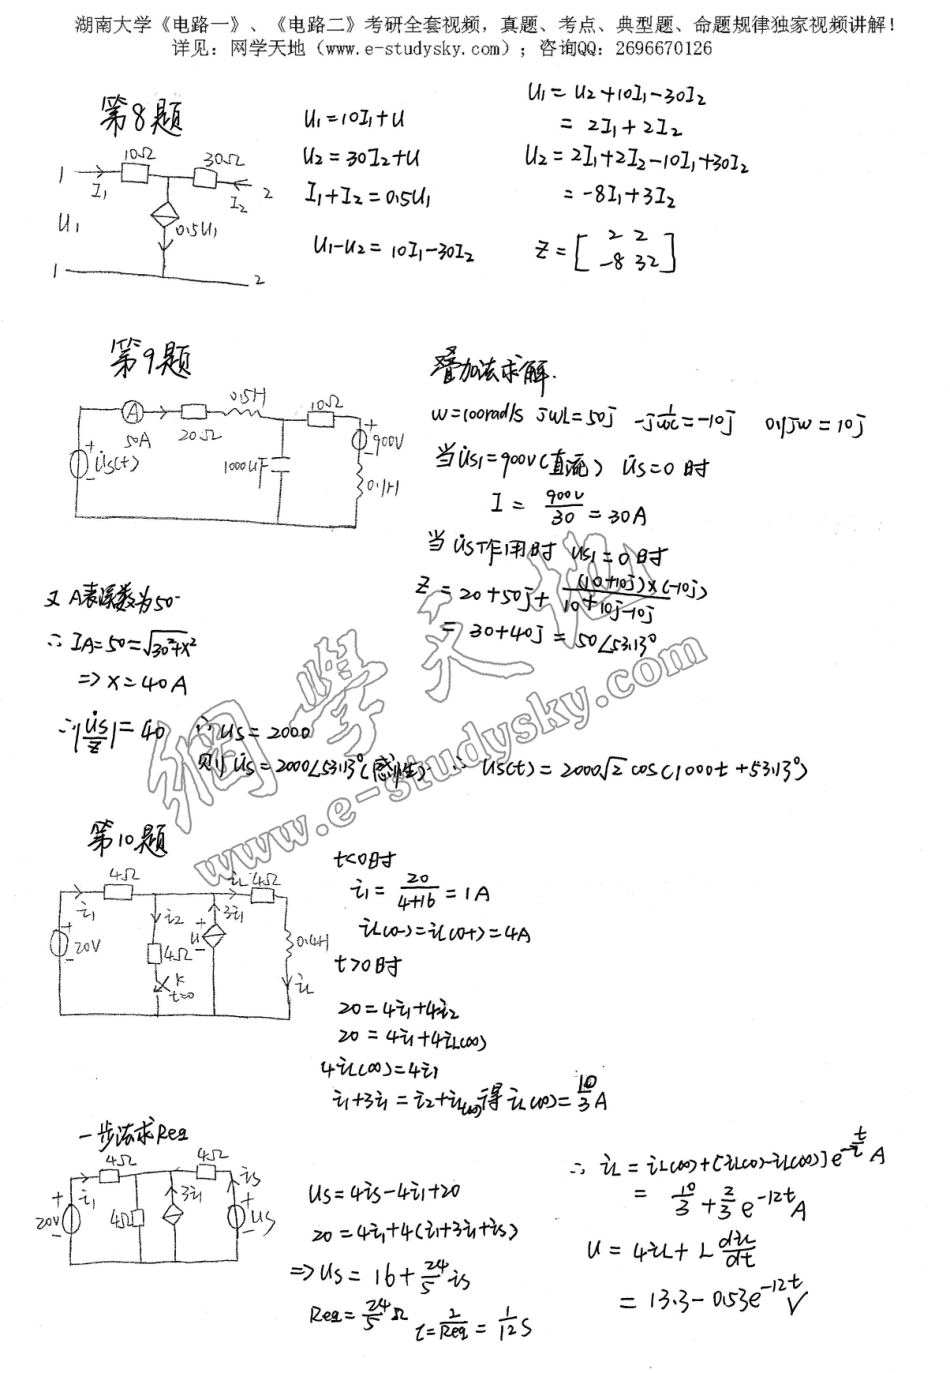 湖南大学《电路一》、《电路二》考研全套视频，真题、考点、典型题、命题规律独家视频讲解！
详见：网学天地（www.e-studysky.com）；咨询QQ：2696670126
第8题
10Ω
30Ω
1
I₁
I₂
2
U₁
0.5U₁
1
2
U₁=10I₁+U
U₂=30I₂+U
I₁+I₂=0.5U₁
U₁-U₂=10I₁-30I₂
U₁=U₂+10I₁-30I₂
=2I₁+2I₂
U₂=2I₁+2I₂-10I₁+30I₂
=-8I₁+3I₂
Z=[2 2
-8 32]
第9题
A
50A
20Ω
0.5H
10Ω
+
u̇s(t)
-
1000uF
+
900V
-
0.1H
叠加法求解.
w=100rad/s jwL=50j -j1/wc=-10j 0.1jw=10j
当u̇s1=900V(直流) u̇s=0时
I=900V/30=30A
当u̇s作用时 us1=0时
Z=20+50j+(10+10j)×(-10j)/10+10j-10j
=30+40j=50∠53.13°
又A表读数为50
∴IA=50=√30²+x²
=>x=40A
∴|u̇s/z|=40 ∴us=2000
则u̇s=2000∠53.13°(感性) ∴us(t)=2000√2cos(1000t+53.13°)
網學天地
www.e-studysky.com
第10题
4Ω
i₁
+
20V
-
i₂
4Ω
K
t=0
+
u
-
3i₁
iL
4Ω
0.4H
iL
t<0时
i₁=20/4+16=1A
iL(0-)=iL(0+)=4A
t>0时
20=4i₁+4i₂
20=4i₁+4iL(∞)
4iL(∞)=4i₁
i₁+3i₁=i₂+iL(∞)得iL(∞)=10/3A
一步法求Req
4Ω
4Ω
i₁
+
20V
-
4Ω
3i₁
is
+
us
-
us=4is-4i₁+20
20=4i₁+4(i₁+3i₁+is)
=>us=16+24/5is
Req=24/5Ω t=2/Req=1/12S
∴iL=iL(∞)+[iL(0)-iL(∞)]e^-t/τ A
=10/3+2/3e^-12t A
u=4iL+Ldil/dt
=13.3-0.53e^-12t V